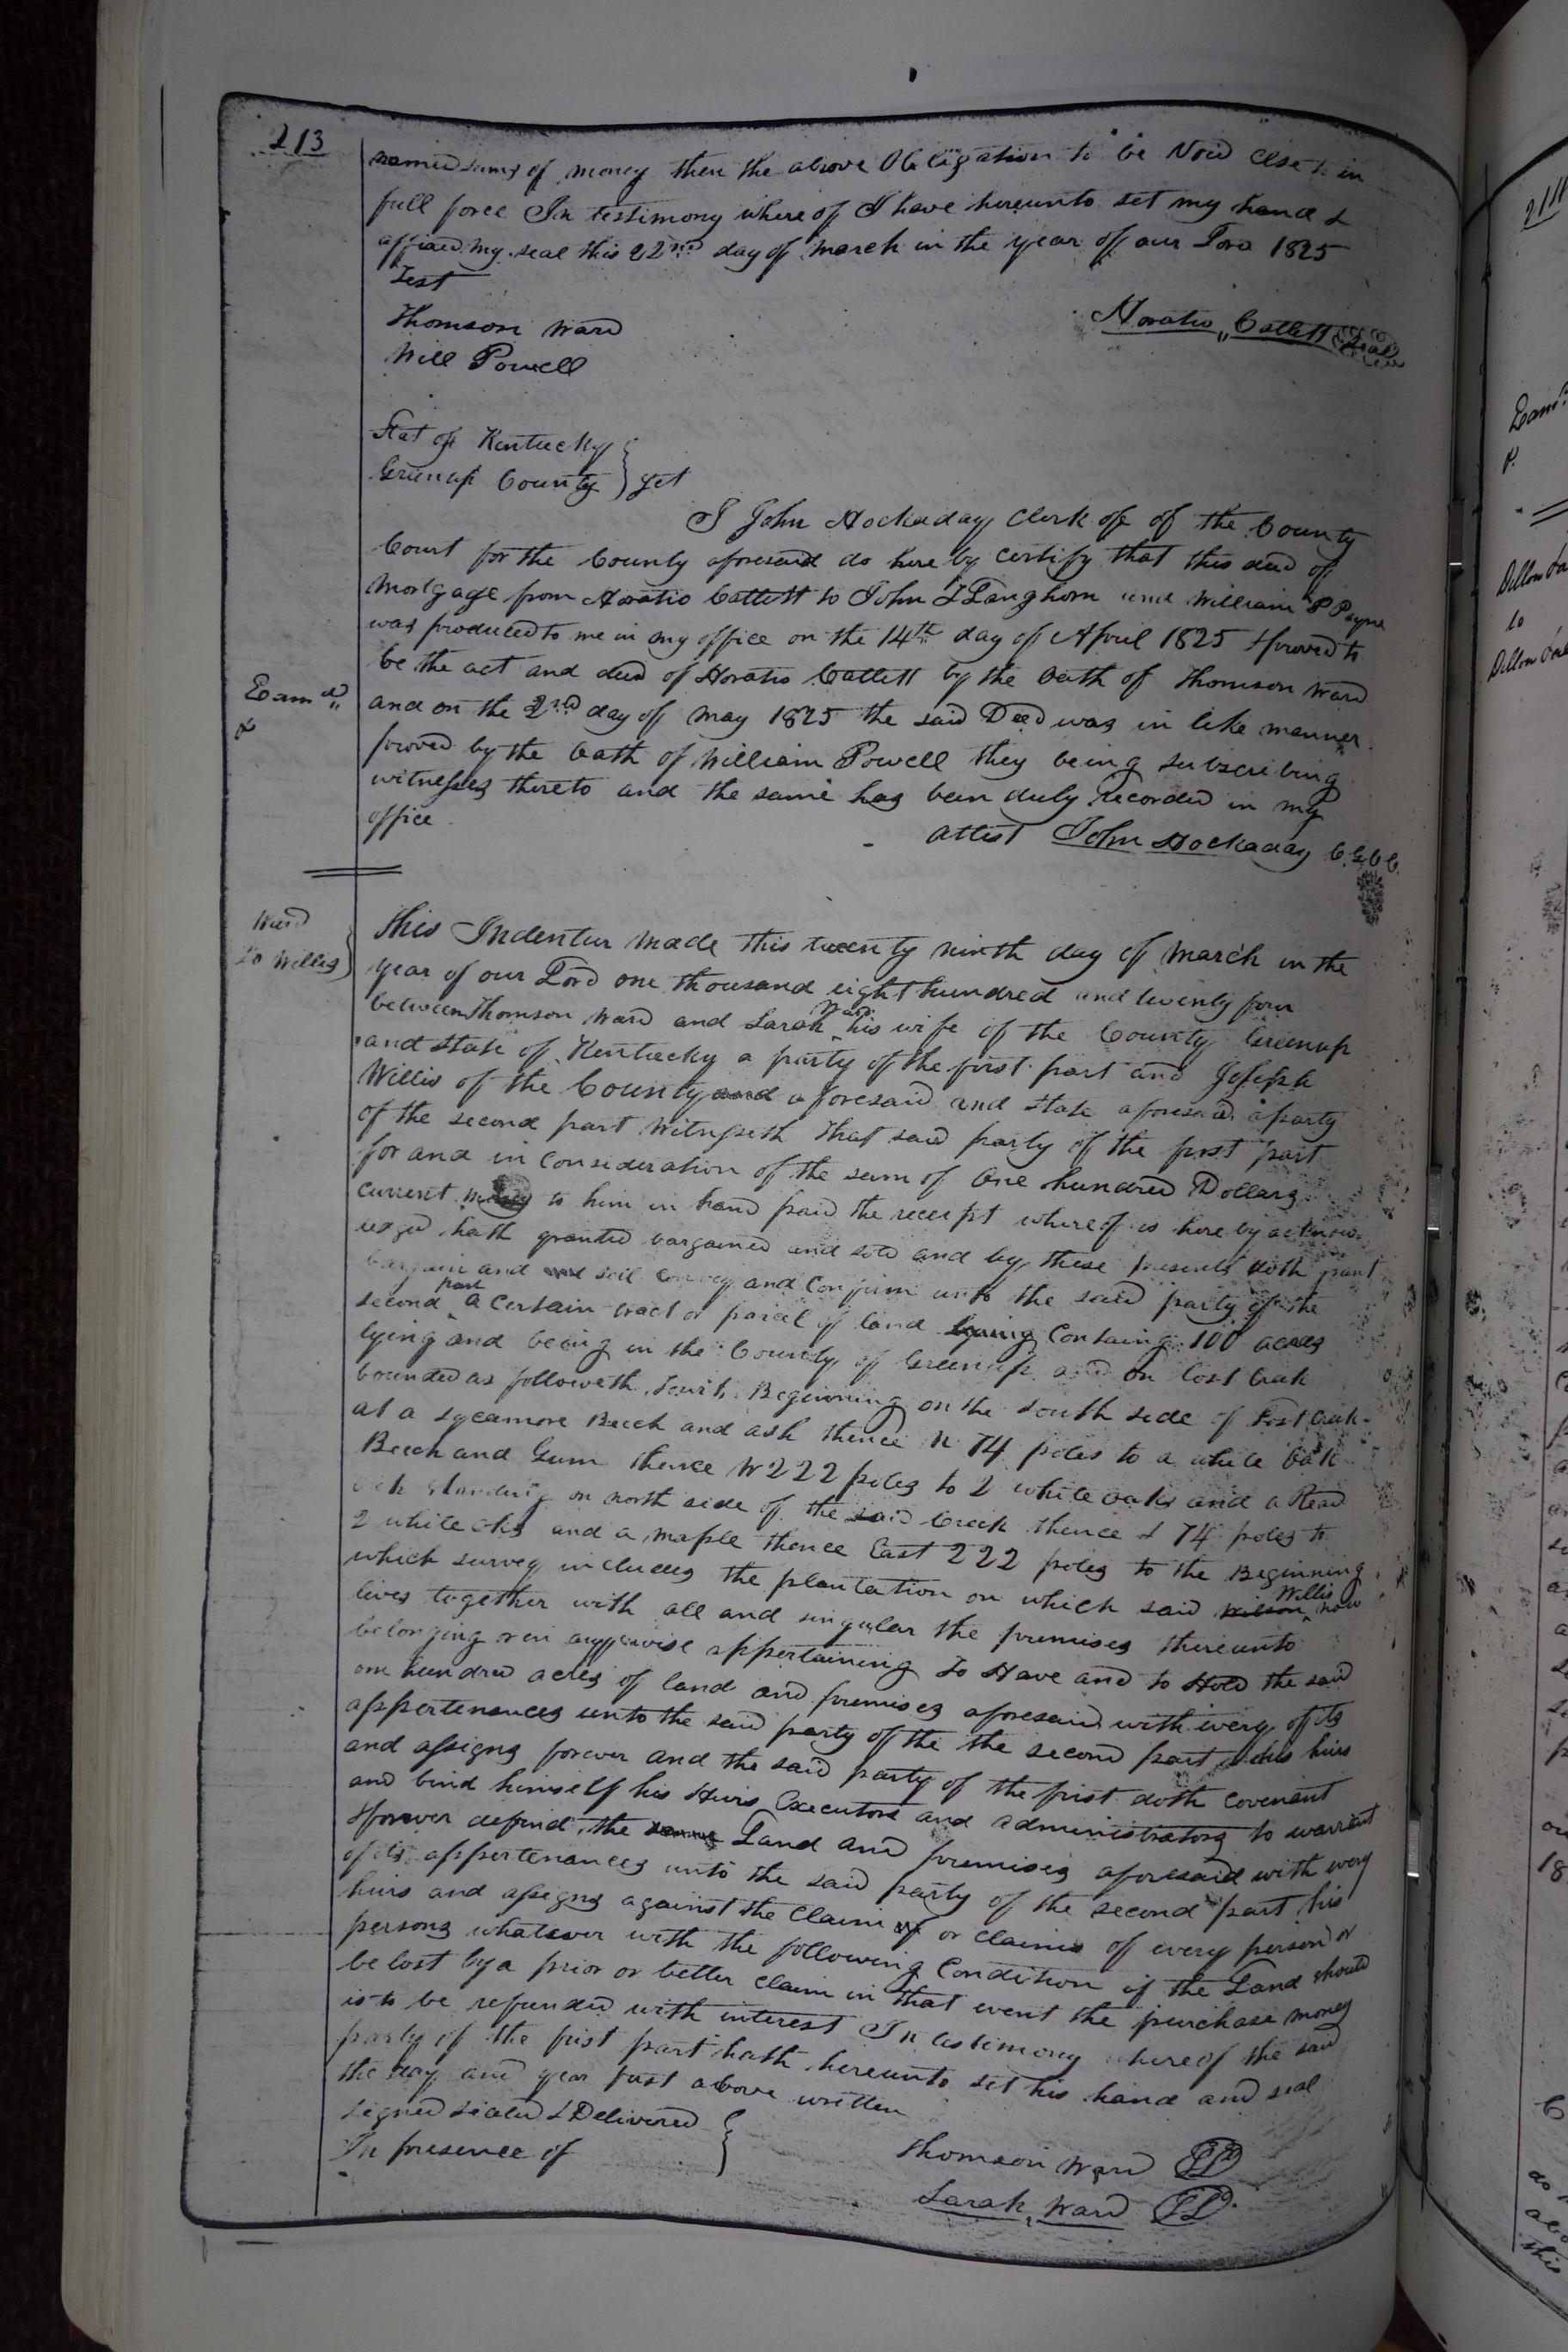 213
named sums of money then the above Obligation to be Void else to in
full force In testimony where of I have hereunto set my hand &
affixed my seal this 22nd day of march in the year of our Lord 1825
Test
Thomson Ward
Horatio Catlett Seal
Will Powell
Stat of Kentucky
Greenup County } Sct
I John Hockaday Clerk of of the County
Court for the County aforesaid do here by certify that this deed of
Mortgage from Horatio Catlett to John T Langhorn and William P Payne
was produced to me in my office on the 14th day of April 1825 & proved to
be the act and deed of Horatio Catlett by the Oath of Thomson Ward
Examd
and on the 2nd day of may 1825 the said Deed was in like manner
proved by the Oath of William Powell they being subscribing
witnesses thereto and the same has been duly Recorded in my
office
attest John Hockaday C.G.C.C.
Ward
To Willis }
This Indentur made this twenty ninth day of March in the
year of our Lord one thousand eight hundred and twenty four
between Thomson Ward and Sarah Ward his wife of the County Greenup
and State of Kentucky a party of the first part and Joseph
Willis of the County and aforesaid and state aforesaid a party
of the second part Witnesseth That said party of the first part
for and in Consideration of the sum of One hundred Dollars
current money to him in hand paid the receipt where of is here by acknow
edged hath granted bargained and sold and by these presents doth grant
bargain and sell convey and Confirm unto the said party of the
second part a Certain tract or parcel of land lyaing Containg 100 acres
lying and being in the County of Greenup and on Lost Creek
bounded as followeth, Towit, Beginning on the South side of Lost Creek
at a sycamore Beech and ash thence N 74 poles to a white Oak
Beech and Gum thence W 222 poles to 2 white oaks and a Read
oak standing on north side of the said Creek thence S 74 poles to
2 white oks and a maple thence East 222 poles to the Beginning
which survey includes the plantation on which said Wilson Willis now
lives together with all and singular the premises thereunto
belonging or in anywise appertaining To Have and to Hold the said
one hundred acres of land and premises aforesaid with every of its
appertenances unto the said party of the the second part his heirs
and assigns forever and the said party of the first doth Covenant
and bind himself his Heirs Executors and administrators to warrant
& forever defend the Land and premises aforesaid with every
of its appertenances unto the said party of the second part his
heirs and assigns against the Claim of or claims of every person or
persons whatever with the following Condition if the Land should
be lost by a prior or better claim in that event the purchase money
is to be refunded with interest In testimony whereof the said
party of the first part hath hereunto set his hand and seal
the day and year first above written
Signed Sealed & Delivered }
In presence of
Thomson Ward
Sarah Ward